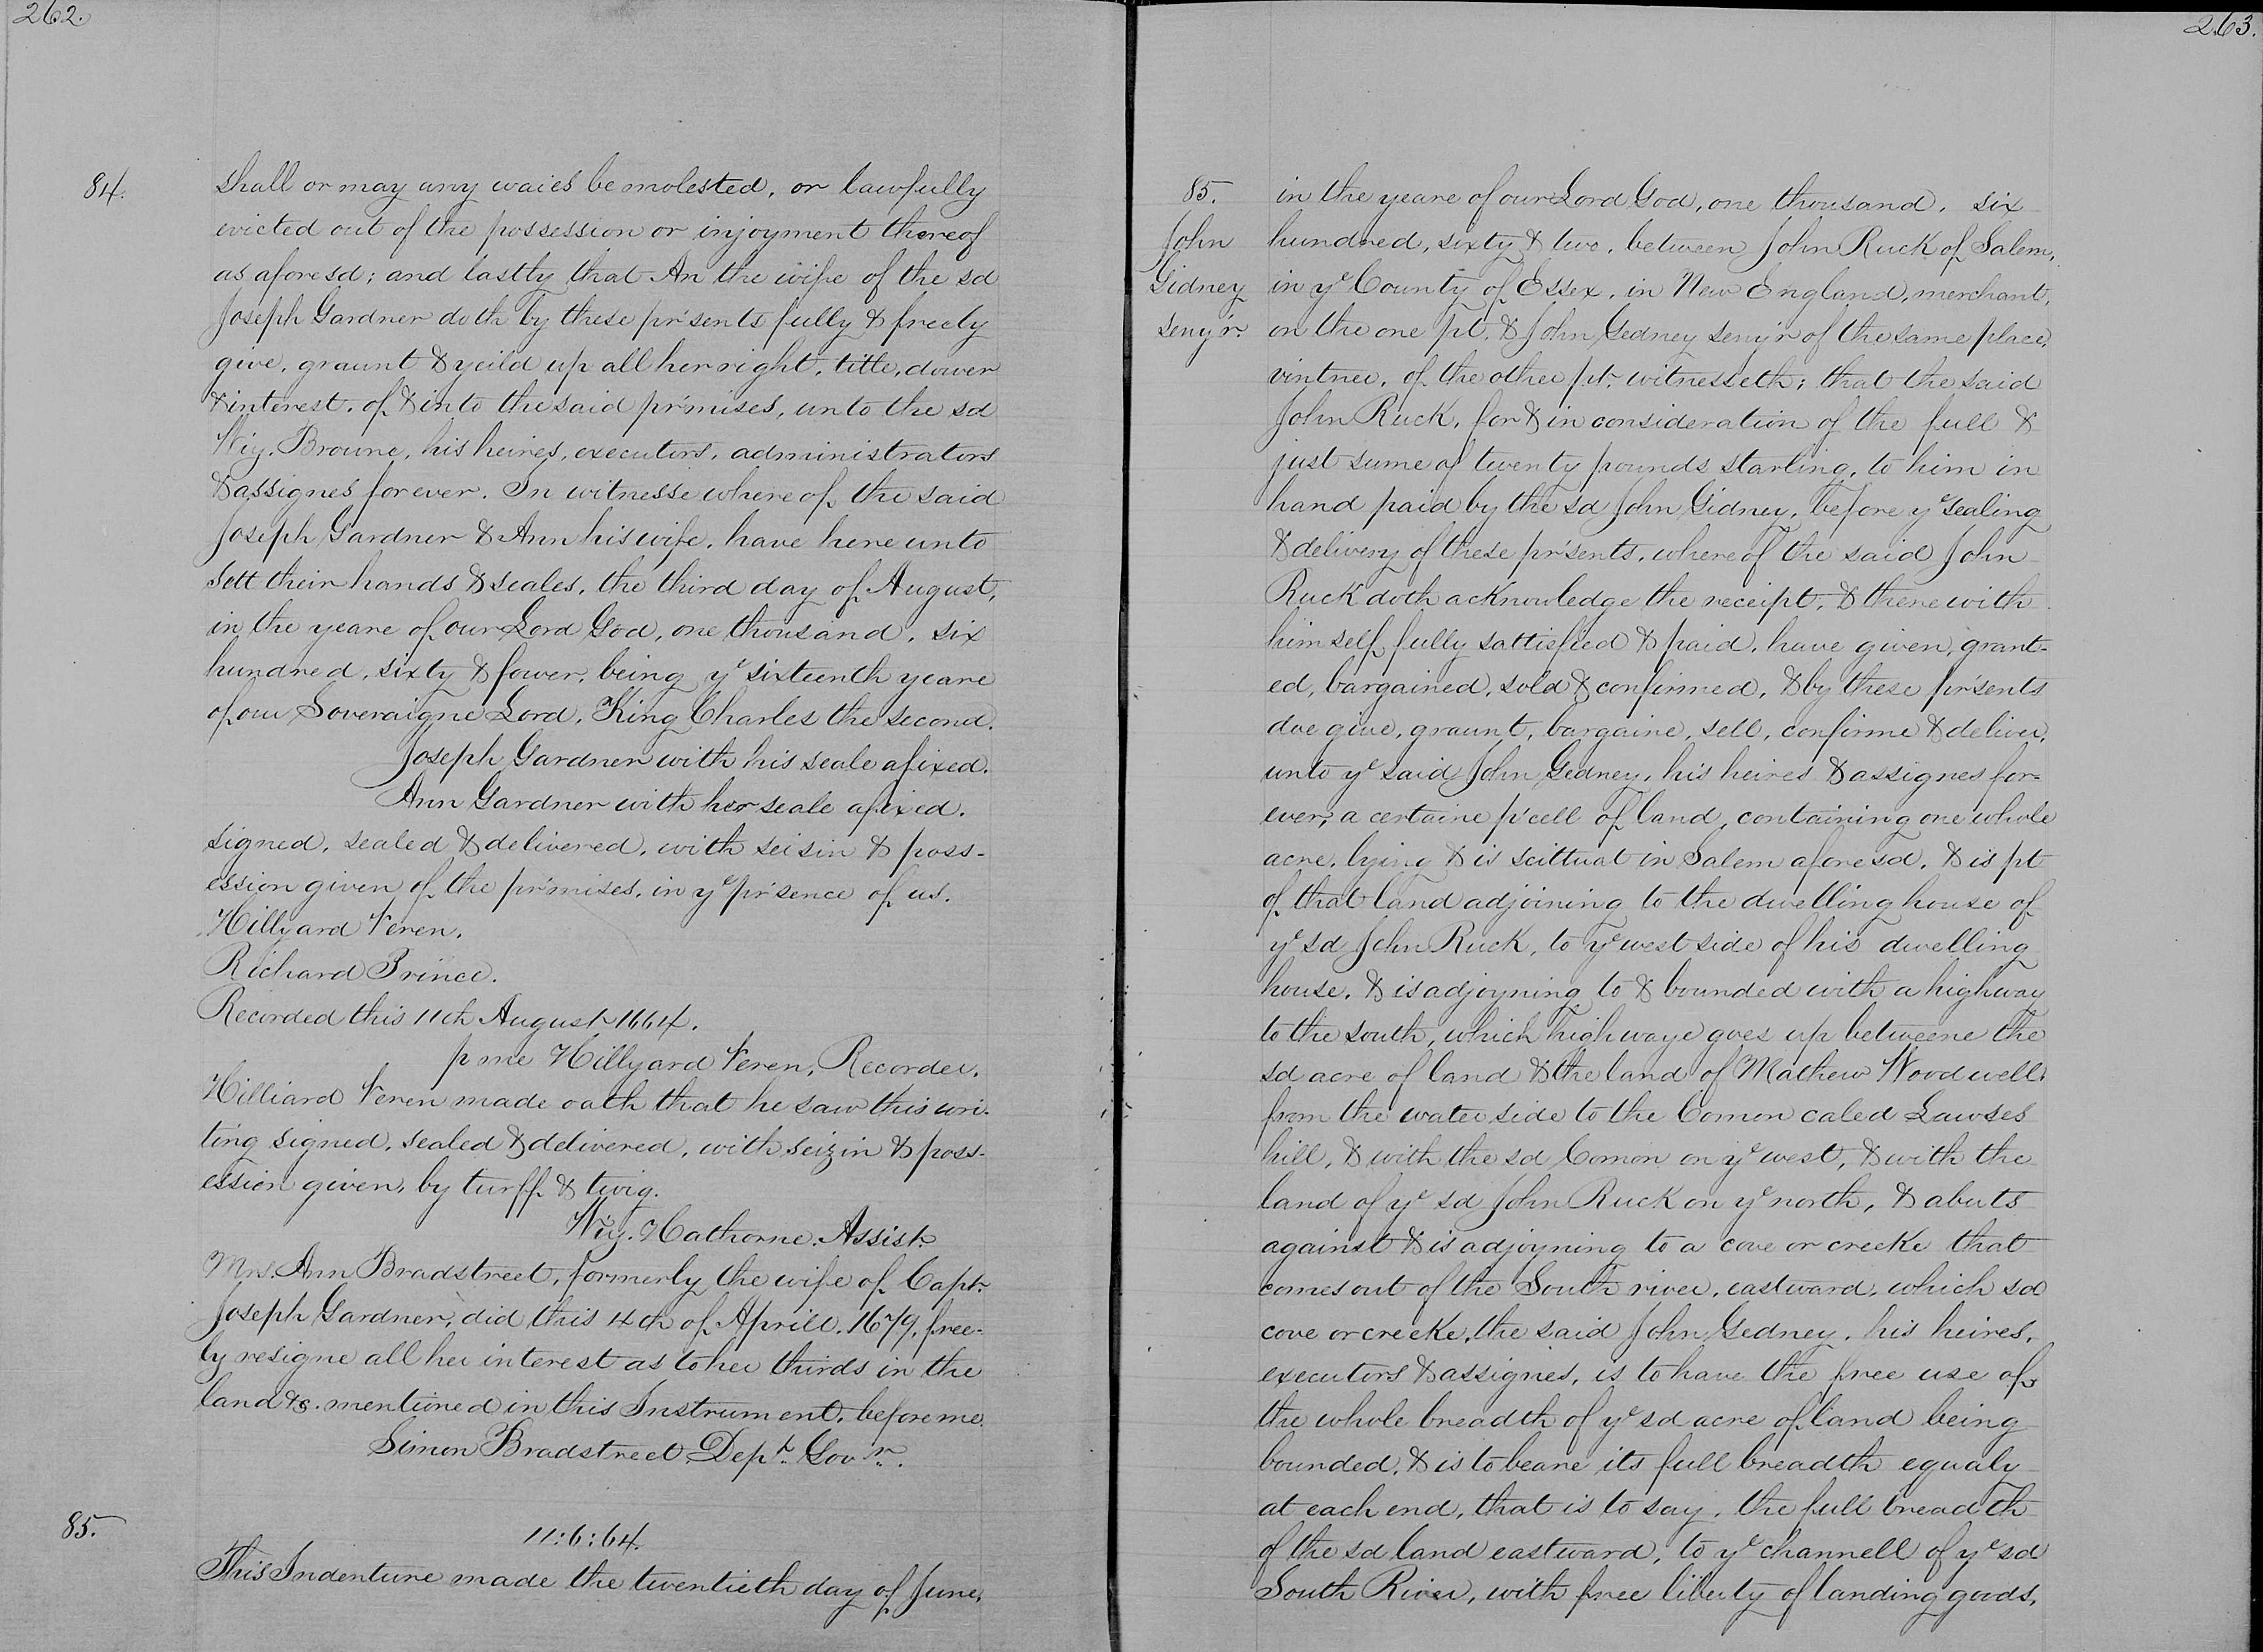 262.
84.
shall or may any waies be molested, or lawfully
evicted out of the possession or injoyment thereof
as aforesd; and lastly that An the wife of the sd
Joseph Gardner doth by these pr'sents fully & freely
give, graunt & yeild up all her right, title, dower
& interest, of & into the said pr'mises, unto the sd
Browne, his heires, executors, administrators
& assignes for ever. In witnesse whereof the said
Joseph Gardner & Ann his wife, have here unto
sett their hands & seales, the third day of August,
in the yeare of our Lord God, one thousand, six
hundred, sixty & fower, being ye sixteenth yeare
of our Soveraigne Lord, King Charles the second.
Joseph Gardner with his seale afixed.
Ann Gardner with her seale afixed.
signed, sealed & delivered, with seisin & poss-
ession given of the pr'mises, in ye pr'sence of us.
Hillyard Veren.
Richard Prince.
Recorded this 11th August 1664.
p me Hillyard Veren, Recorder.
Hilliard Veren made oath that he saw this wri-
ting signed, sealed & delivered, with seizin & poss-
ession given, by turff & twig.
Hathorne. Assist.
Mrs. Ann Bradstreet, formerly the wife of Capt.
Joseph Gardner, did this 4th of Aprill, 1679, free-
ly resigne all her interest as to her thirds in the
land &c. mentioned in this Instrument, before me.
Simon Bradstreet Dept. Govr.
85.
11:6:64.
This Indenture made the twentieth day of June,
263.
85.
John
Gidney
seny'r.
in the yeare of our Lord God, one thousand, six
hundred, sixty & two, between John Ruck of Salem,
in ye County of Essex, in New England, merchant,
on the one pt. & John Gedney seny'r of the same place,
vintner, of the other pt. witnesseth; that the said
John Ruck, for & in consideration of the full &
just sume of twenty pounds starling, to him in
hand paid by the sd John Gidney, before ye sealing
& delivery of these pr'sents, where of the said John
Ruck doth acknowledge the receipt, & there with
himself fully sattisfied & paid, have given, grant-
ed, bargained, sold & confirmed, & by these pr'sents
doe give, graunt, bargaine, sell, confirme & deliver,
unto ye said John Gedney, his heires & assignes for-
ever, a certaine p'cell of land, containing one whole
acre, lying & is scittuat in Salem aforesd, & is pt
of that land adjoining to the dwelling house of
ye sd John Ruck, to ye west side of his dwelling
house, & is adjoyning to & bounded with a highway
to the south, which highwaye goes up betweene the
sd acre of land & the land of Mathew Woodwell,
from the water side to the Comon caled Lawses
hill, & with the sd Comon on ye west, & with the
land of ye sd John Ruck on ye north, & abuts
against & is adjoyning to a cove or creeke that
comes out of the South river, eastward, which sd
cove or creeke, the said John Gedney, his heires,
executors & assignes, is to have the free use of,
the whole breadth of ye sd acre of land being
bounded, & is to beare its full breadth equaly
at each end, that is to say, the full breadth
of the sd land eastward, to ye channell of ye sd
South River, with free liberty of landing goods,